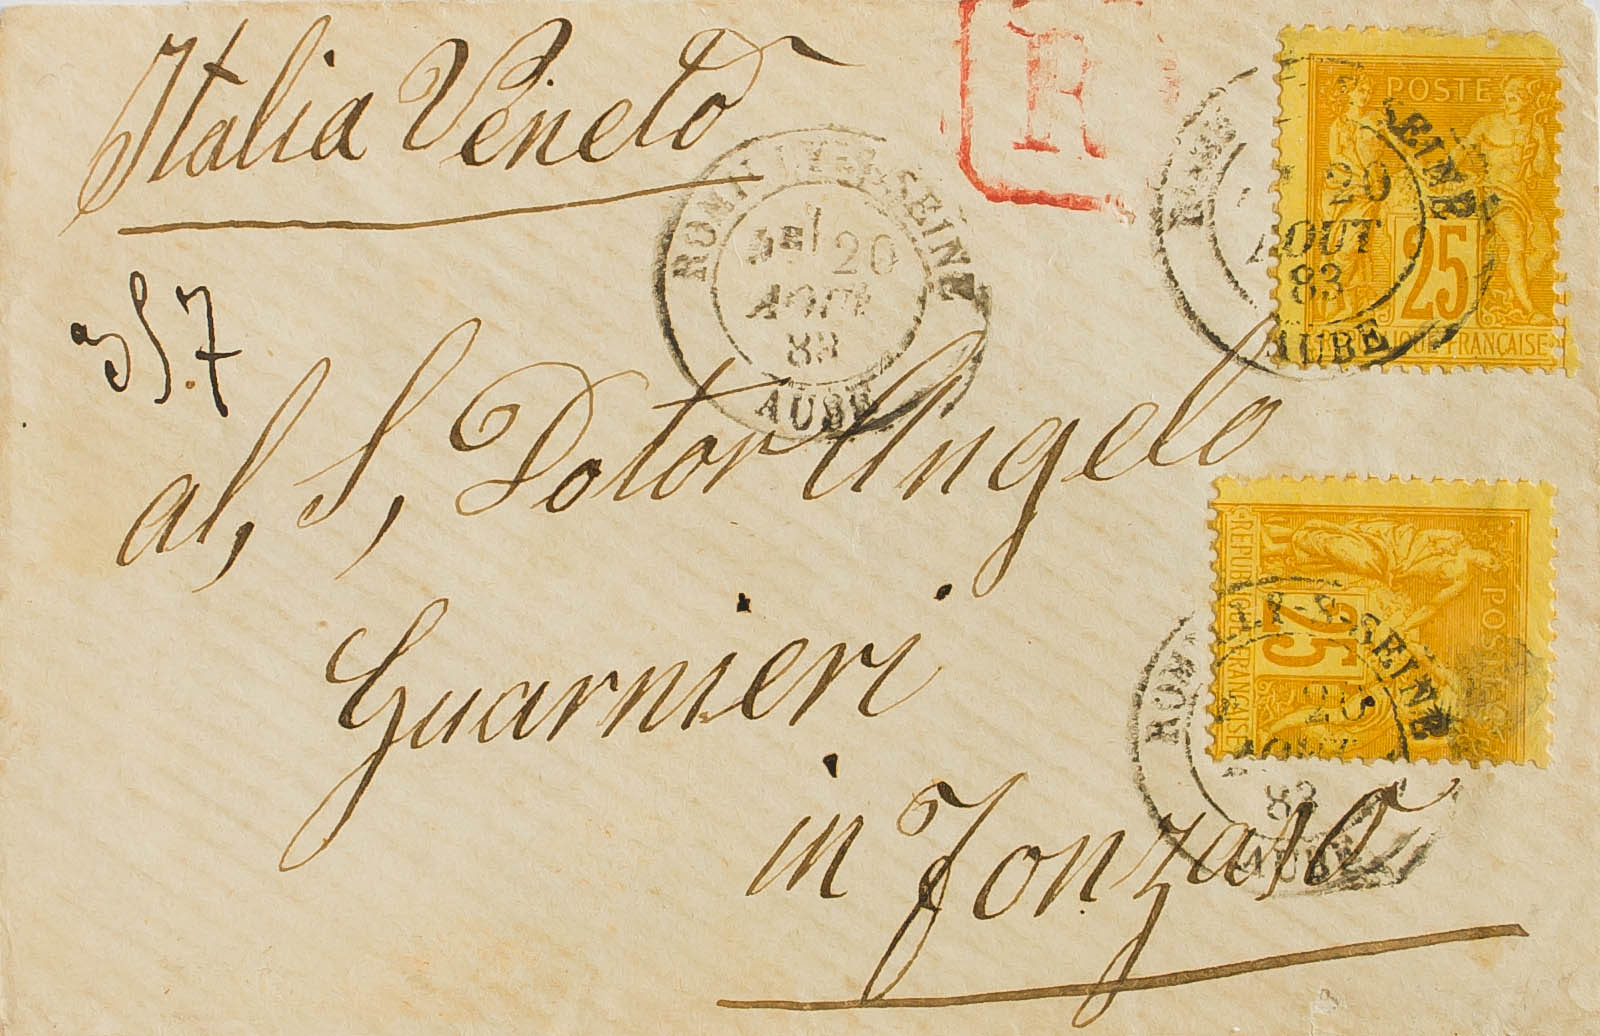 Italia Veneto
R
POSTE
SEINE
20
AOUT
83
AUBE
25
FRANÇAISE
ROMILLY-S-SEINE
20
AOUT
83
AUBE
357
al, S, Dotor Angelo
Guarnieri
in Fonzaso
POSTE
25
RÉPUBLIQUE FRANÇAISE
ROMILLY-S-SEINE
AOUT
83